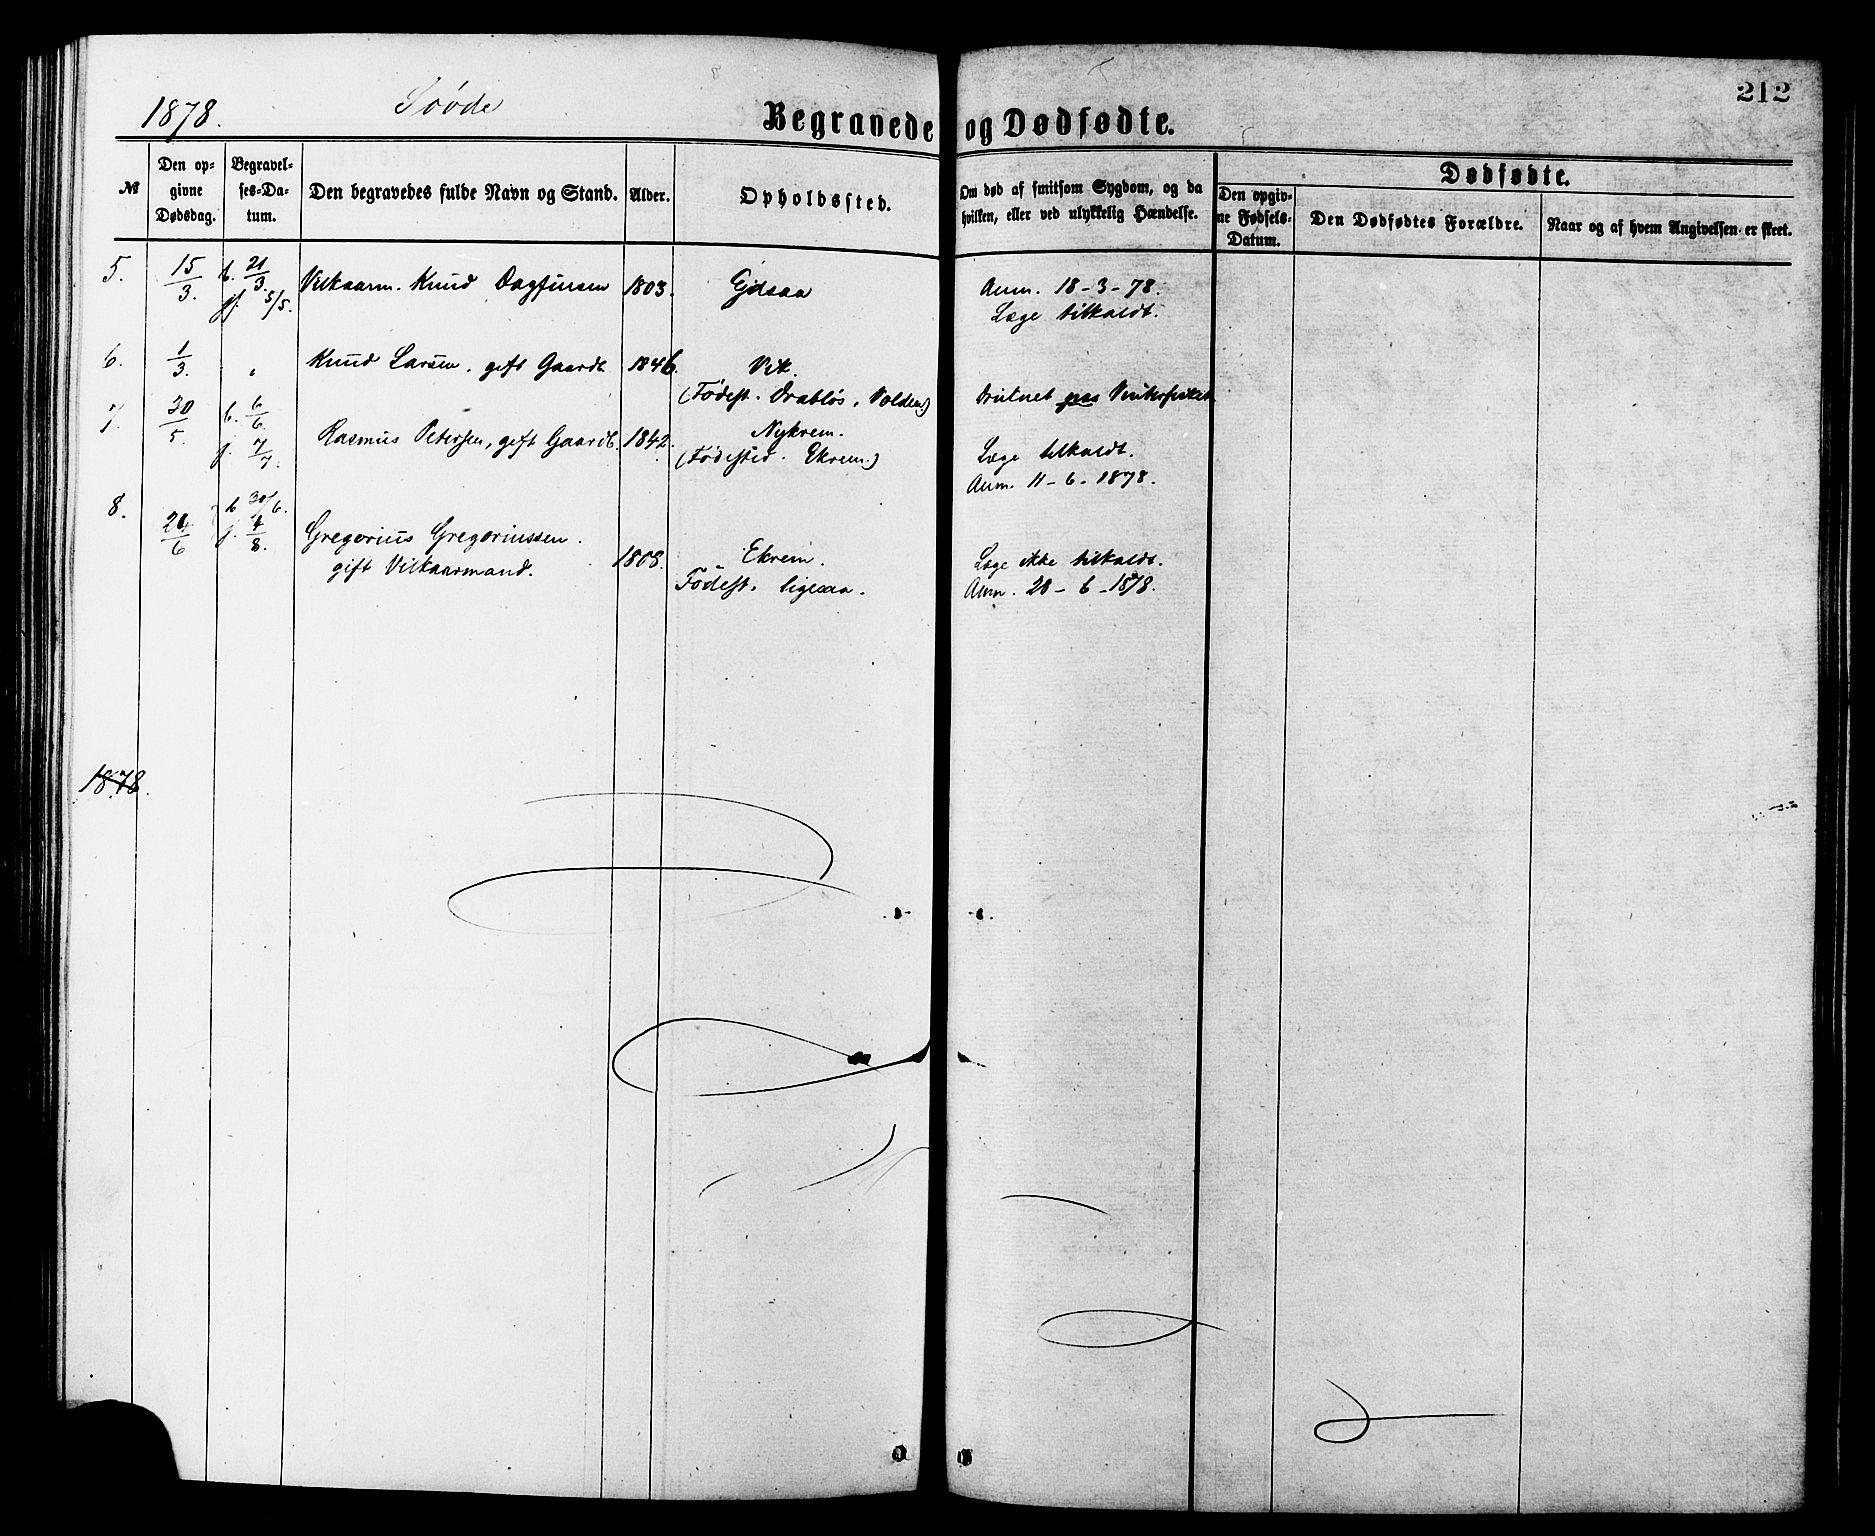 1878. Søøde
Begravede og Dødfødte.
212
№
Den opgivne Dødsdag.
Begravelses-Datum.
Den begravedes fulde Navn og Stand.
Alder.
Opholdssted.
Om død af smitsom Sygdom, og da hvilken, eller ved ulykkelig Hændelse.
Dødfødte.
Den opgivne Fødsels-Datum.
Den Dødfødtes Forældre.
Naar og af hvem Angivelsen er skeet.
5. 15/3. b. 21/3. Vilkaarm. Knud Dagfinsen 1803. Ejdsaa Anm. 18-3-78.
jf. 5/5. Læge tilkaldt.
6. 1/3. " Knud Larsen. gift Gaardb. 1846. Vik.
(Fødest. Drabløs, Volden) Druknet paa Vinterfisket
7. 30/5. b. 6/6. Rasmus Petersen, gift Gaardb. 1842. Nykrem.
j. 7/7. (Fødested. Ekrem.) Læge tilkaldt.
Anm. 11-6-1878.
8. b. 30/6.
/6 j. 4/8. Gregorius Gregoriussen.
gift Vilkaarmand. 1808. Ekrem. Læge ikke tilkaldt.
Fødest. ligesaa. Anm. 28-6-1878.
1878.